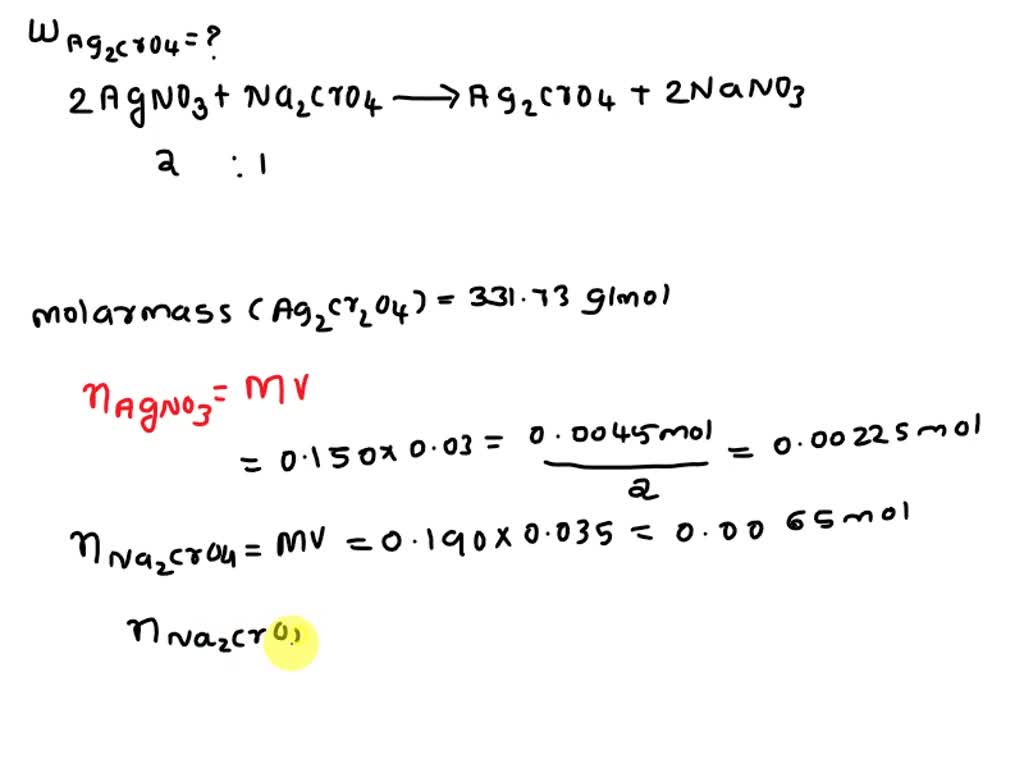 W Ag₂CrO₄ = ?
2AgNO₃ + Na₂CrO₄ ⟶ Ag₂CrO₄ + 2NaNO₃
2 : 1
molarmass (Ag₂Cr₂O₄) = 331.73 g/mol
n AgNO₃ = MV
= 0.150 × 0.03 = 0.0045mol / 2 = 0.00225mol
n Na₂CrO₄ = MV = 0.190 × 0.035 = 0.0065mol
n Na₂CrO